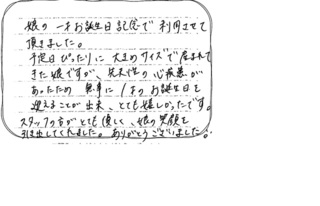 娘の一才お誕生日記念で利用させて
頂きました。
予定日ぴったりに大きめサイズで産まれて
きた娘ですが、先天性の心疾患が
あったため無事に1才のお誕生日を
迎えることが出来、とても嬉しかったです。
スタッフの方がとても優しく、娘の笑顔を
引き出してくれました。ありがとうございました。